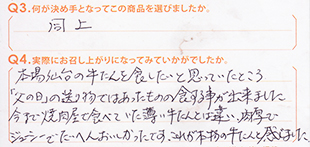 Q3.何が決め手となってこの商品を選びましたか。
同上
Q4.実際にお召し上がりになってみていかがでしたか。
本場仙台の牛たんを食したいと思っていたところ
「父の日」の送り物ではあったものの食する事が出来ました
今まで焼肉屋で食べていた薄い牛たんとは違い、肉厚で
ジューシーでたいへんおいしかったです。これが本物の牛たんと感じました。